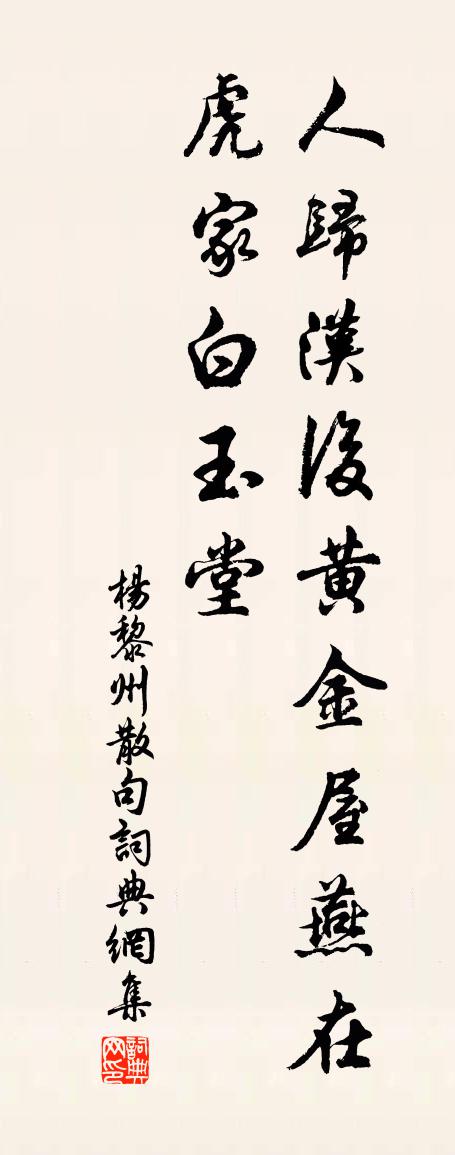 人歸漢後黃金屋燕在
虎家白玉堂
楊黎州散句詞典網集
詞典网印